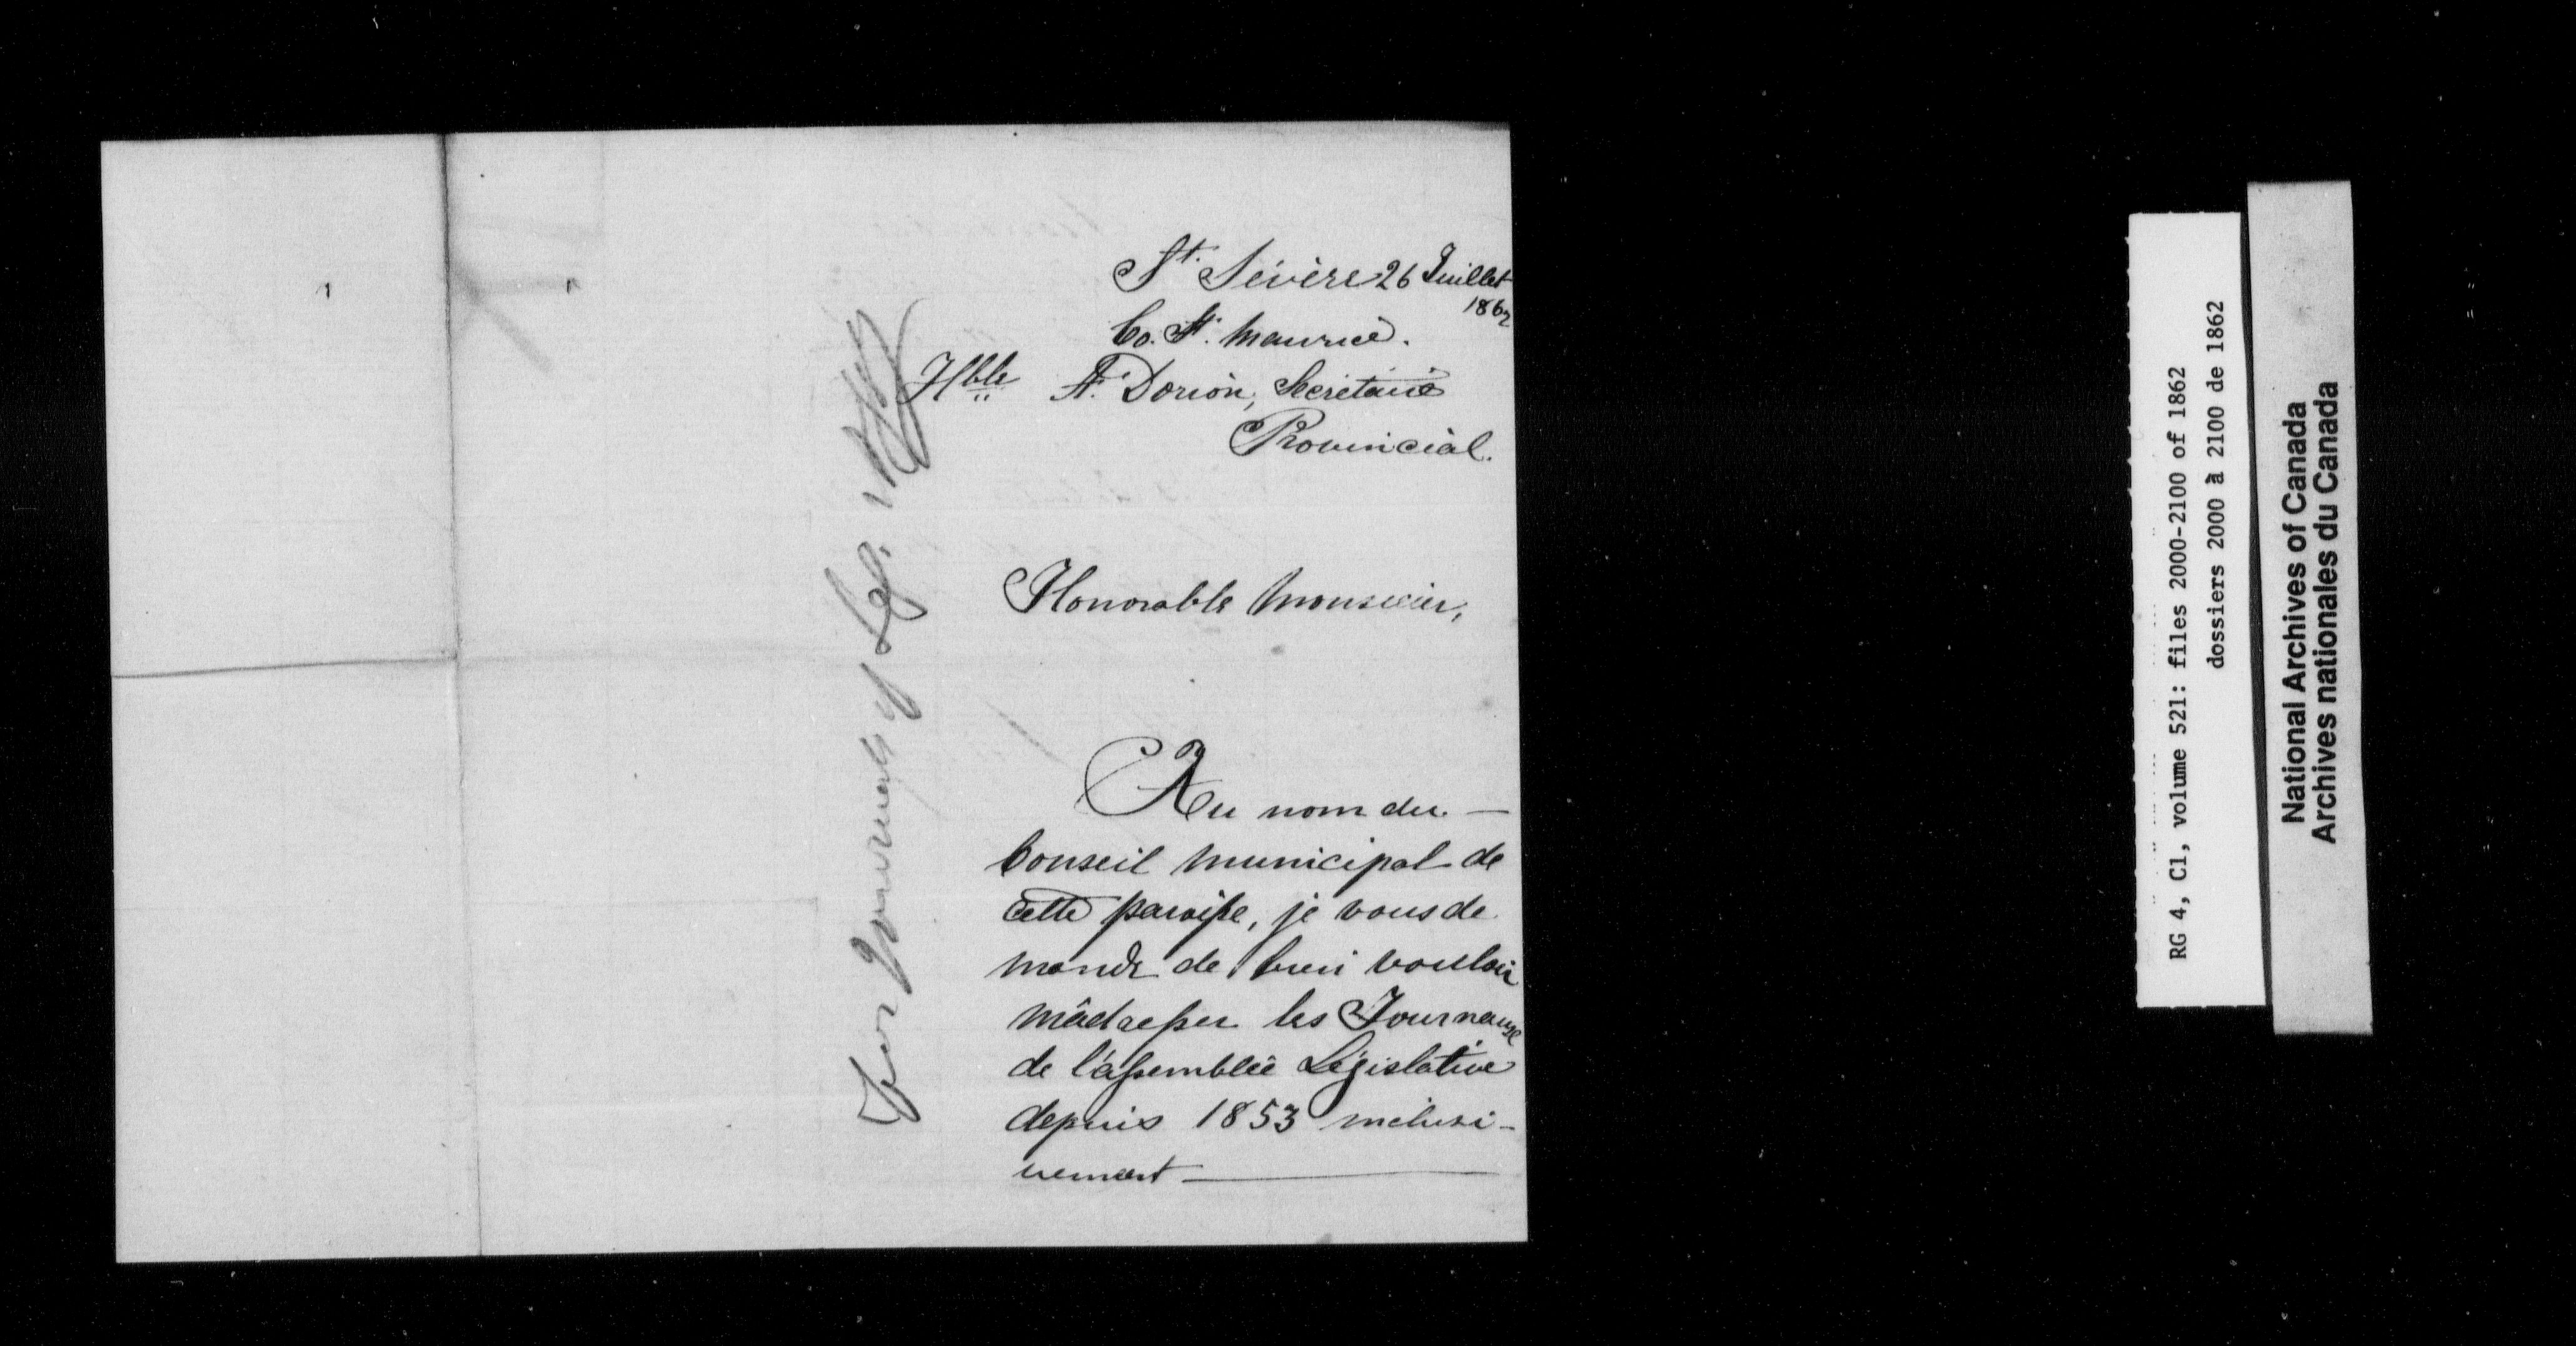 St. Sévère 26 Juillet
1862
Co. St. Maurice.
Hble A. Dorion, Secrétaire
Provincial.
Honorable Monsieur,
Au nom du —
Conseil Municipal de
cette paroisse, je vous de
mande de bien vouloir
m'adresser les Journaux
de l'assemblée Législative
depuis 1853 inclusi-
vement —
For Journals of Leg.
RG 4, C1, volume 521: files 2000-2100 of 1862
dossiers 2000 à 2100 de 1862
National Archives of Canada
Archives nationales du Canada